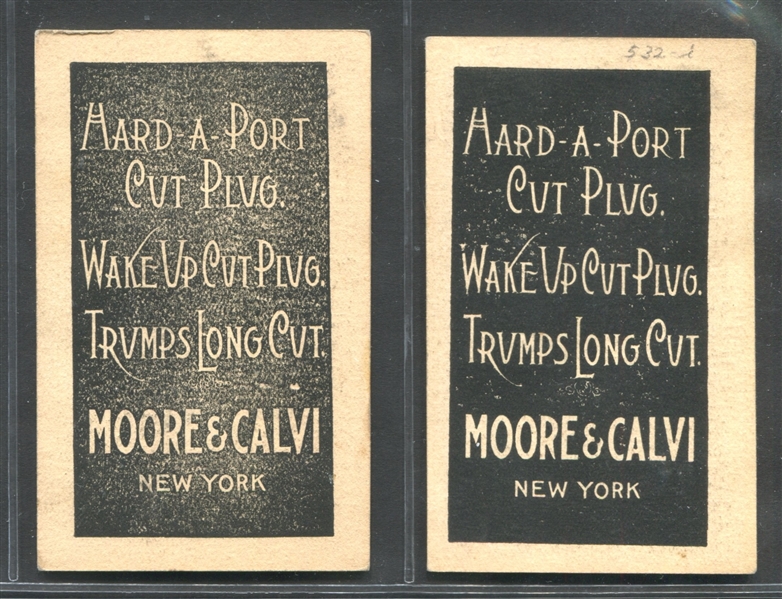 HARD-A-PORT
CUT PLUG.
WAKE UP CUT PLUG.
TRUMPS LONG CUT.
MOORE & CALVI
NEW YORK
532-1
HARD-A-PORT
CUT PLUG.
WAKE UP CUT PLUG.
TRUMPS LONG CUT.
MOORE & CALVI
NEW YORK